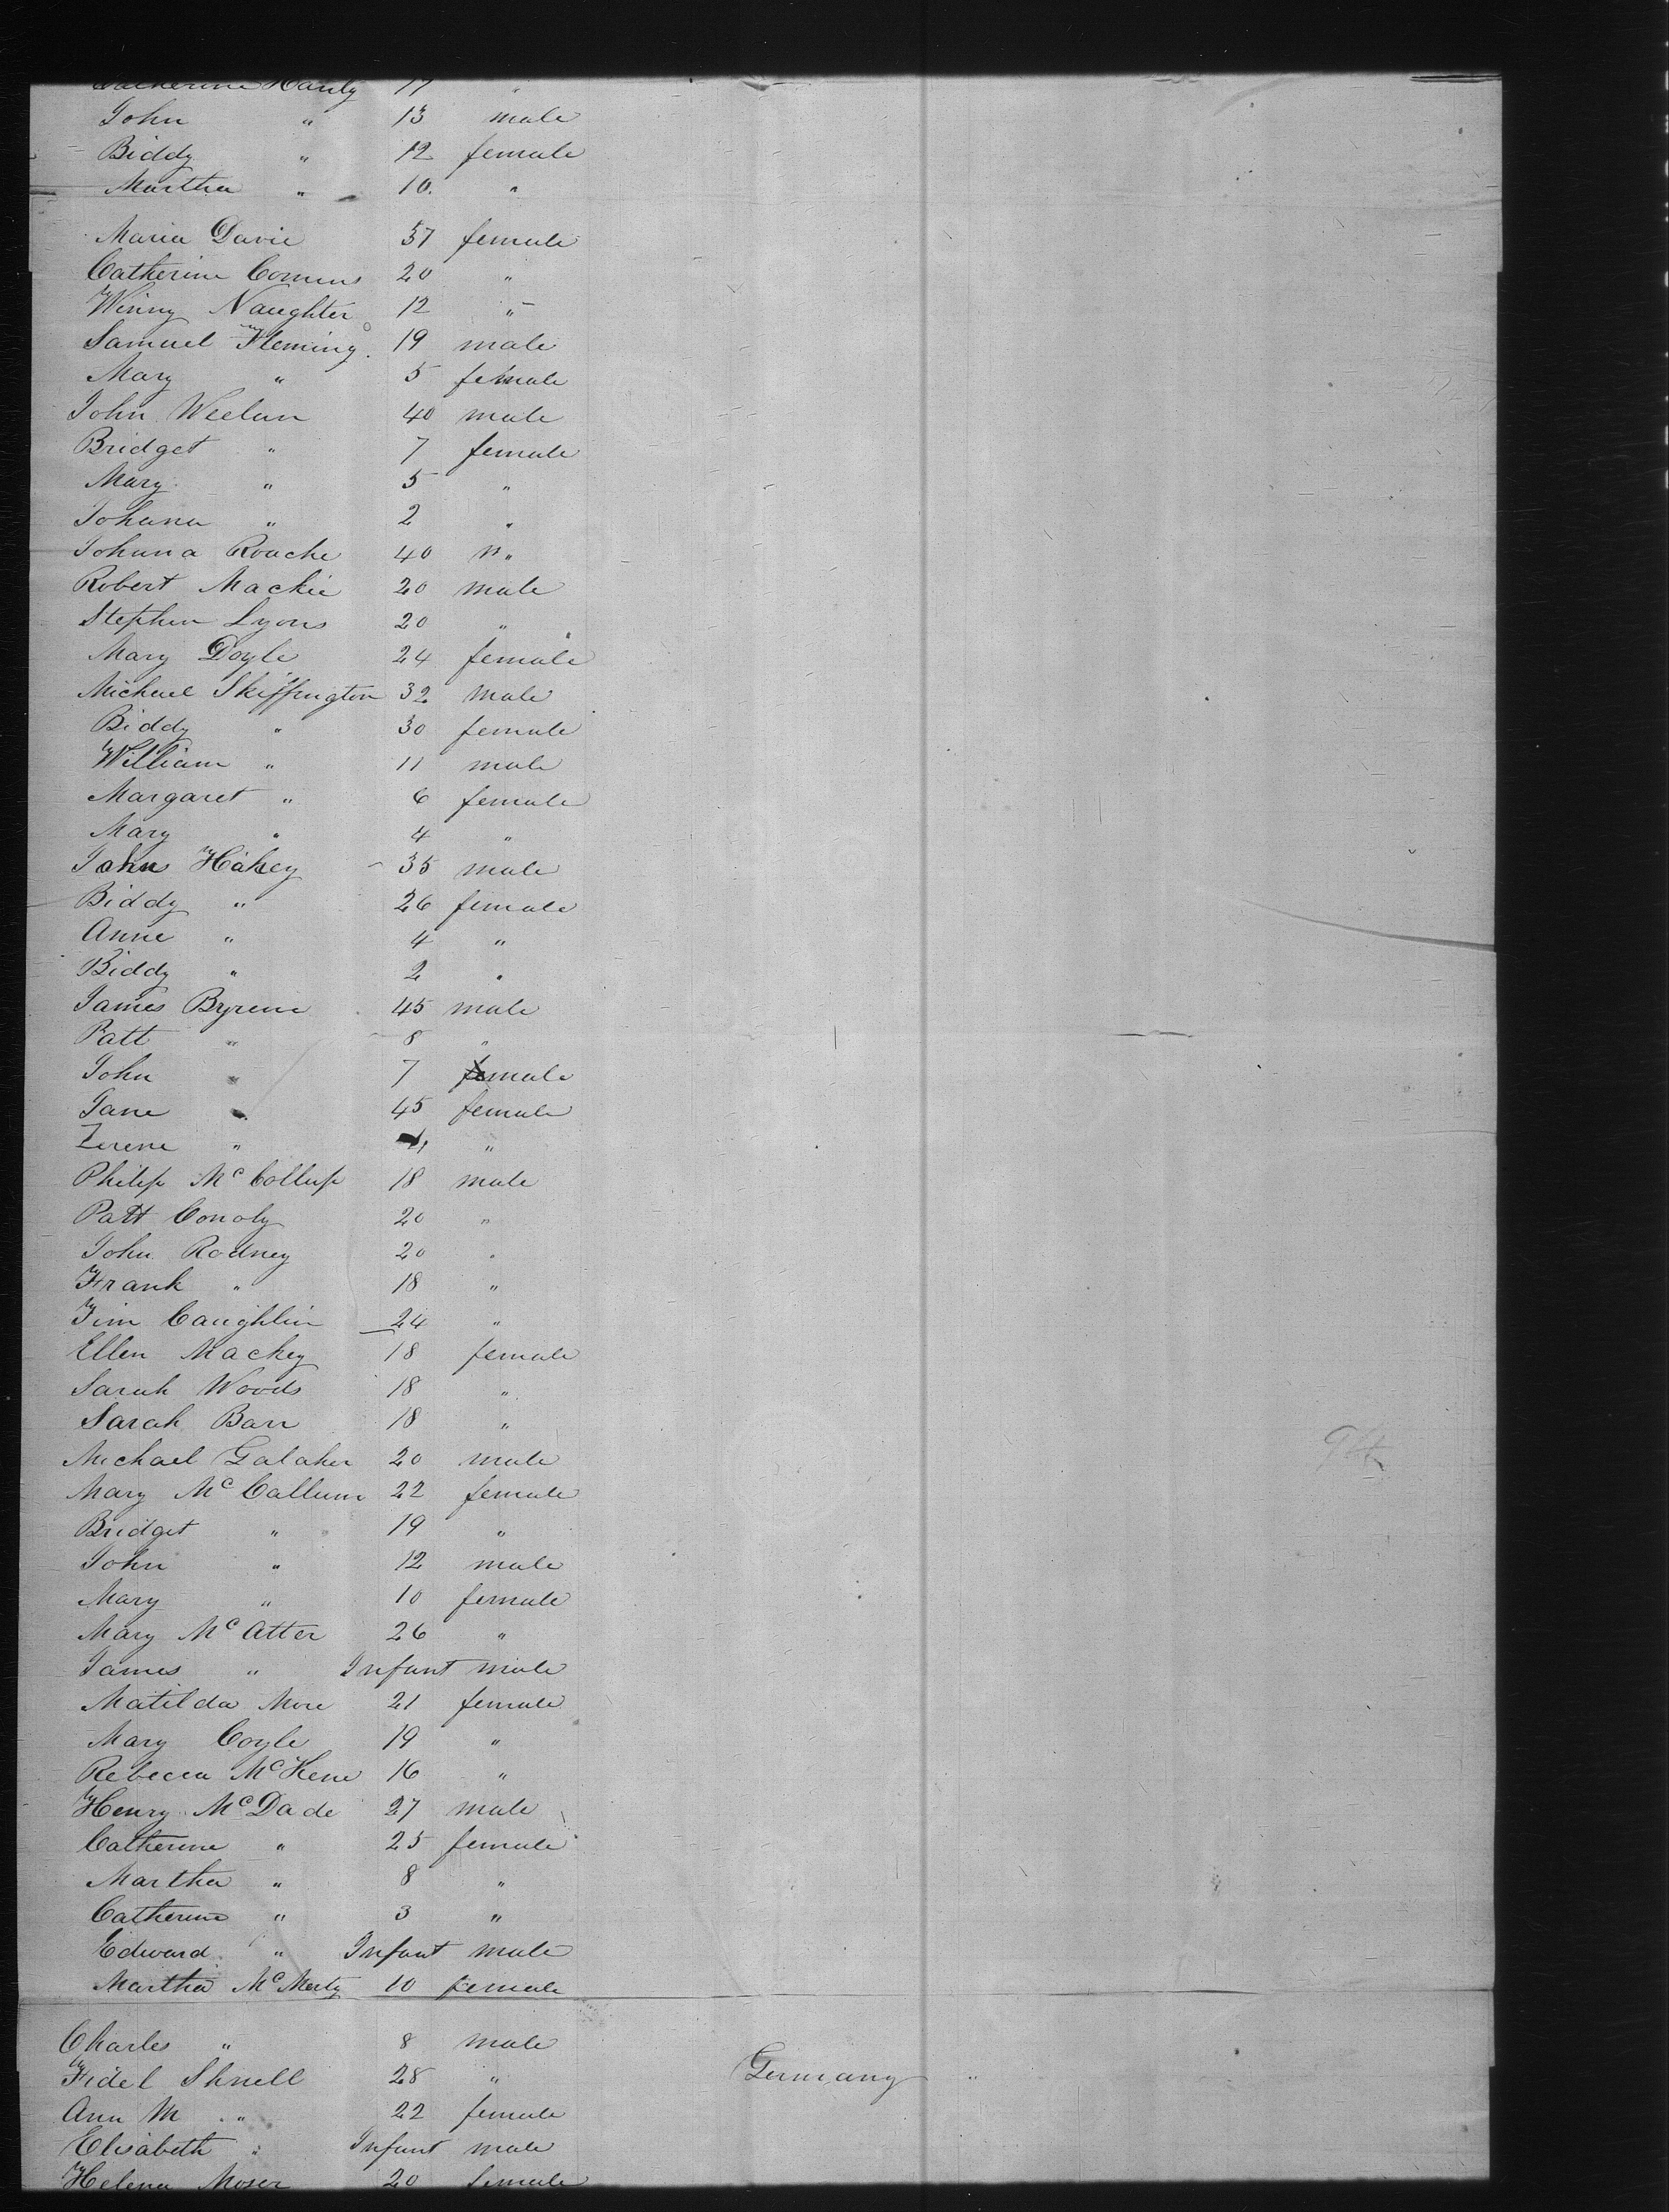 Catherine Hanly 17 "
John " 13 male
Biddy " 12 female
Martha " 10 "
Maria Davie 37 female
Catherine Comens 20 "
Winny Naughter 12 "
Samuel Fleming 19 male
Mary " 5 female
John Weelan 40 male
Bridget " 7 female
Mary " 5 "
Johana " 2 "
Johana Roache 40 "
Robert Mackie 20 male
Stephen Lyons 20 "
Mary Doyle 24 female
Michael Skiffington 32 male
Biddy " 30 female
William " 11 male
Margaret " 6 female
Mary " 4 "
John Hakey 35 male
Biddy " 26 female
Anne " 4 "
Biddy " 2 "
James Byrene 45 male
Patt " 8 "
John " 7 male
Jane " 45 female
Zerene " "
Philip Mc Collup 18 male
Patt Conoly 20 "
John Rodney 20 "
Frank " 18 "
Tim Caughlin 24 "
Ellen Mackey 18 female
Sarah Woods 18 "
Sarah Barr 18 "
Michael Galaher 20 male
Mary Mc Callum 22 female
Bridget " 19 "
John " 12 male
Mary " 10 female
Mary Mc Atter 26 "
James " Infant male
Matilda More 21 female
Mary Coyle 19 "
Rebecca McKene 16 "
Henry McDade 27 male
Catherine " 25 female
Martha " 8 "
Catherine " 3 "
Edward " Infant male
Martha Mc Merty 10 female
Charles " 8 male
Fidel Shnell 28 " Germany "
Ann M " 22 female
Elisabeth " Infant male
Helena Moser 20 female